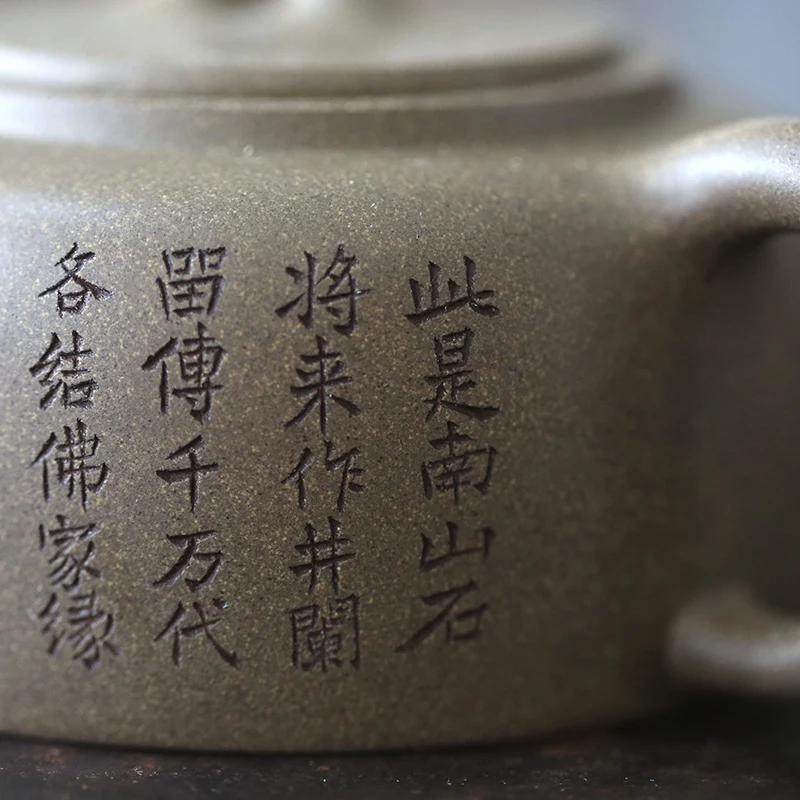 此是南山石
将来作井闌
畱傳千万代
各结佛家缘